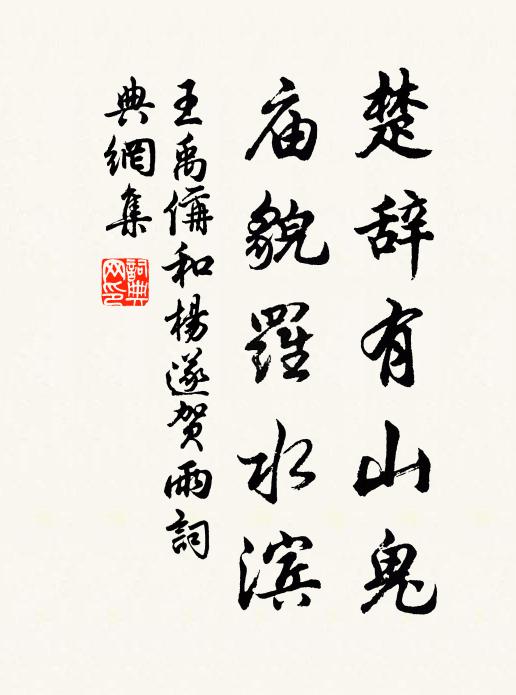 楚辞有山鬼
庙貌羅水滨
王禹偁和楊遂贺雨詞
典網集
詞典
网印